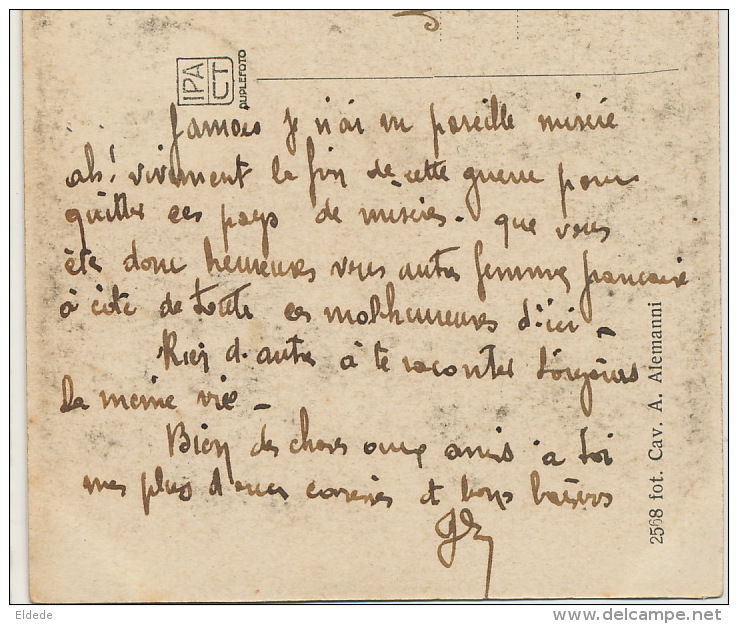 IPA
CT
DUPLEFOTO
Jamais je n'ai vu pareille misère
ah! vivement la fin de cette guerre pour
quitter ces pays de misères. que vous
ête donc heureuses vous autres femmes française
à côté de toute ces malheureuses d'ici –
Rien d'autre à te raconter toujours
la meme vie –
Bien des choses aux amis à toi
mes plus douces caresses et bons baisers
2568 fot. Cav. A. Alemanni
Eldede
www.delcampe.net